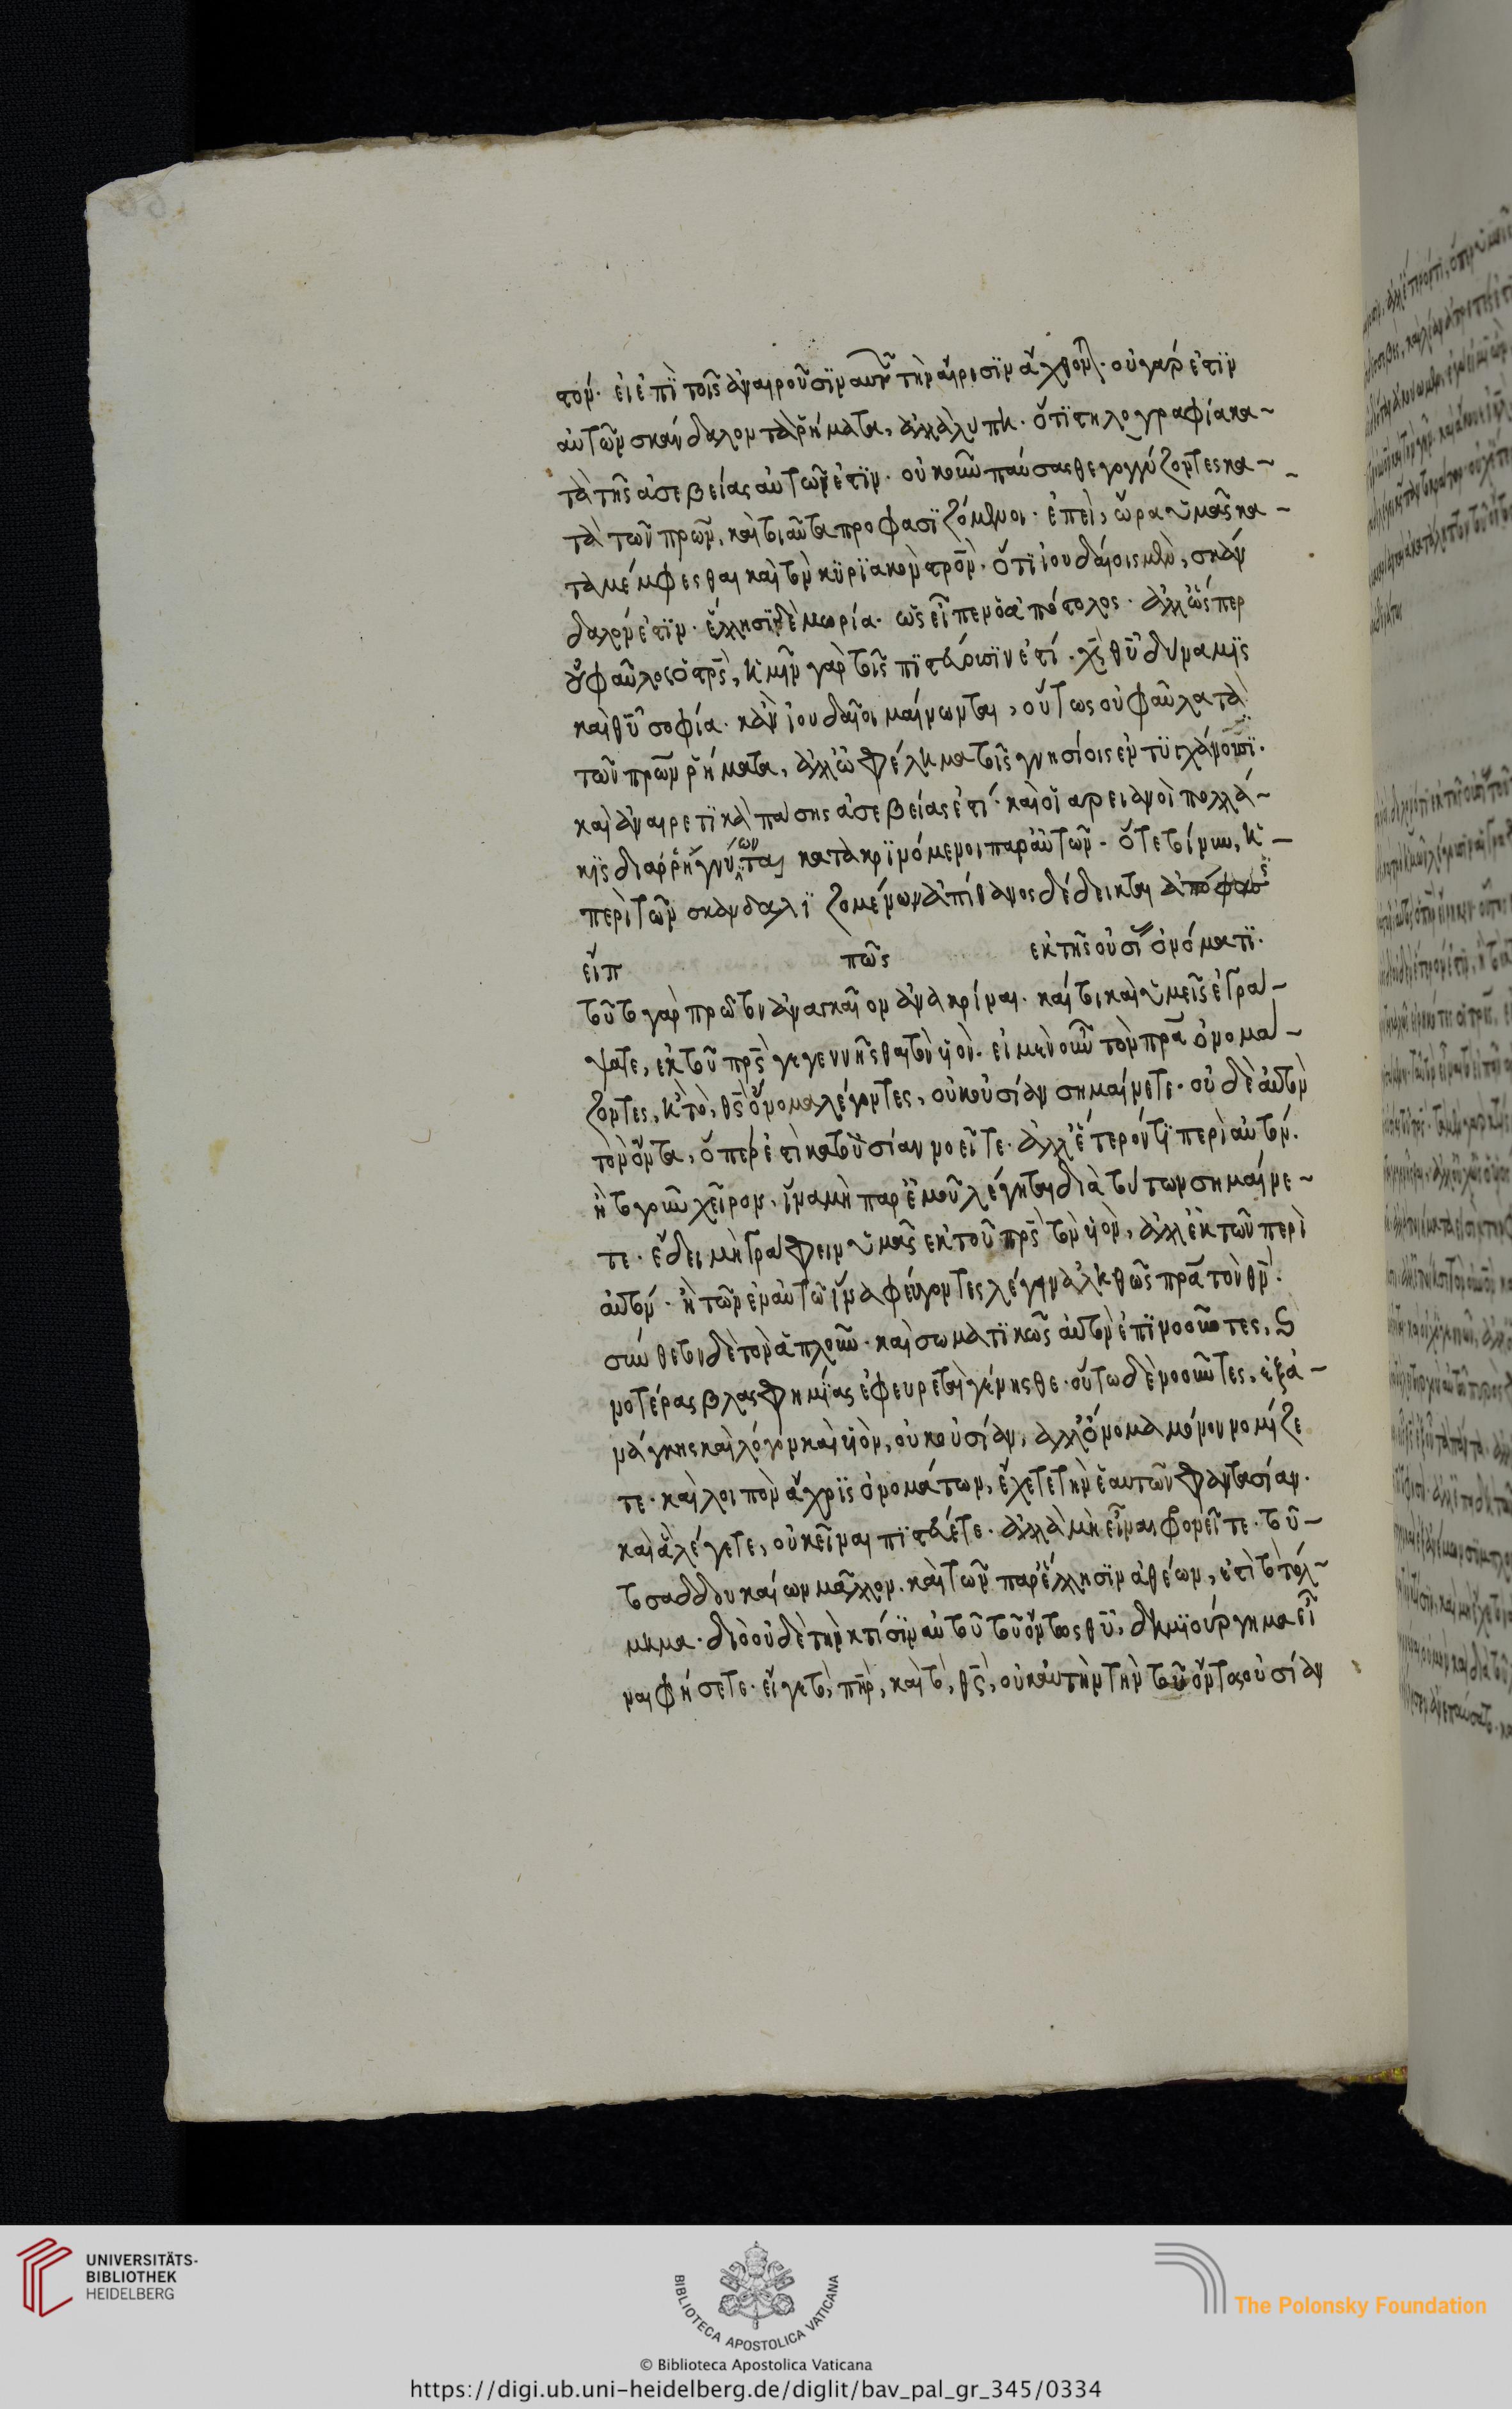 τον. εἰ ἐπὶ τοῖς ἀναιροῦσιν αυτῶν τὴν αἵρεσιν ἄχθονται. οὐ γάρ ἐστιν
αὐτῶν σκάνδαλον τὰ ῥήματα, ἀλλὰ λυπεῖ. ὅτι στηλογραφία κα-
τὰ τῆς ἀσεβείας αὐτῶν ἐστιν. οὐκοῦν παύσασθε γογγύζοντες κα-
τὰ τῶν πρων, καὶ τοιαῦτα προφασιζόμενοι. ἐπεὶ, ὥρα ὑμᾶς κα-
ταμέμφεσθαι καὶ τὸν κυριακὸν στρον. ὅτι ἰουδαίοις μὲν, σκάν
δαλόν ἐστιν. ἕλλησι δὲ μωρία. ὡς εἶπεν ὁ ἀπόστολος. ἀλλ' ὥσπερ
οὐ φαῦλος ὁ στρς, ἡμῖν γὰρ τοῖς πιστεύουσιν ἐστί. χς θυ δύναμις
καὶ θυ σοφία. κἂν ἰουδαῖοι μαίνωνται, οὕτως οὐ φαῦλα τὰ
τῶν πρων ῥήματα, ἀλλ' ὠφέλημα τοῖς γνησίοις ἐντυγχάνουσι.
καὶ ἀναιρετικὰ πάσης ἀσεβείας ἐστί. καὶ οἱ αρειανοὶ πολλά-
κις διαρρηγνύωνται κατακρινόμενοι παρ' αὐτῶν. ὅτε τοίνυν, ἡ
περὶ τῶν σκανδαλιζομένων ἀπίθανος δέδεικται
εἴπ πῶς ἐκ τῆς οὐσίας ὀνόματι.
τοῦτο γὰρ πρῶτον ἀναγκαῖον ἀνακρίναι. καίτοι καὶ ὑμεῖς ἐγρά-
ψατε, ἐκ τοῦ πρς γεγεννῆσθαι τὸν υἱόν. εἰ μὲν οὖν τὸν πρα ὀνομά-
ζοντες, ἢ τὸ, θς ὄνομα λέγοντες, οὐκ οὐσίαν σημαίνετε. οὐδὲ αὐτὸν
τὸν ὄντα, ὅπερ ἐστὶ κατ' οὐσίαν νοεῖτε. ἀλλ' ἕτερόν τι περὶ αὐτόν.
ἢ τὸ γοῦν χεῖρον, ἵνα μὴ παρ' ἐμοῦ λέγηται διὰ τούτων σημαίνε-
τε. ἔδει μὴ γράφειν ὑμᾶς ἐκ τοῦ πρς τὸν υἱόν, ἀλλ' ἐκ τῶν περὶ
αὐτόν. ἢ τῶν ἐν αὐτῷ ἵνα φεύγοντες λέγειν ἀληθῶς πρα τὸν θν.
σύνθετον δὲ τὸν ἁπλοῦν. καὶ σωματικῶς αὐτὸν ἐπινοοῦντες, και
νοτέρας βλασφημίας ἐφευρεταὶ γένησθε. οὕτω δὲ νοοῦντες, ἐξ ἀ-
νάγκης καὶ λόγον καὶ υἱόν, οὐκ οὐσίαν, ἀλλ' ὄνομα μόνον νομίζε
τε. καὶ λοιπὸν ἄχρις ὀνομάτων, ἔχετε τὴν ἑαυτῶν φαντασίαν.
καὶ ἃ λέγετε, οὐκ εἶναι πιστεύετε. ἀλλὰ μὴ εἶναι φρονεῖτε. τοῦ-
το σαδδουκαίων μᾶλλον. καὶ τῶν παρ' ἕλλησιν ἀθέων, ἐστὶ τὸ τόλ-
μημα. διὸ οὐδὲ τὴν κτίσιν αὐτοῦ τοῦ ὄντως θυ, δημιούργημα εἶ
ναι φήσετε. εἴ γε τὸ, πηρ, καὶ τὸ, θς, οὐκ αὐτὴν τὴν τοῦ ὄντος οὐσίαν
UNIVERSITÄTS-
BIBLIOTHEK
HEIDELBERG
BIBLIOTECA APOSTOLICA VATICANA
The Polonsky Foundation
© Biblioteca Apostolica Vaticana
https://digi.ub.uni-heidelberg.de/diglit/bav_pal_gr_345/0334